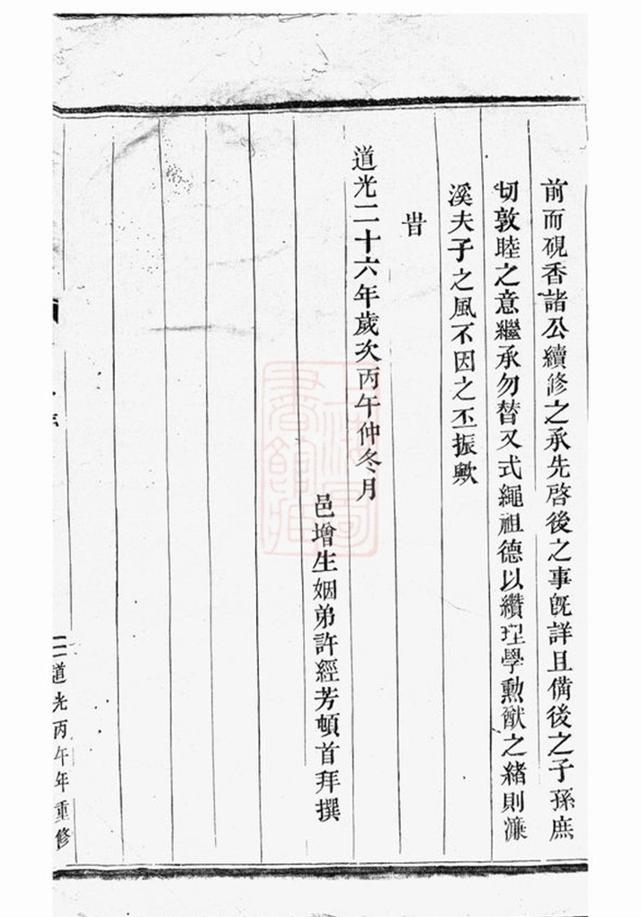 前而硯香諸公續修之承先啓後之事旣詳且備後之子孫庶
切敦睦之意繼承勿替又式繩祖德以纘理學勲猷之緒則濂
溪夫子之風不因之丕振歟
旹
道光二十六年歲次丙午仲冬月
邑增生姻弟許經芳頓首拜撰
二
道光丙午年重修
上海圖書館藏